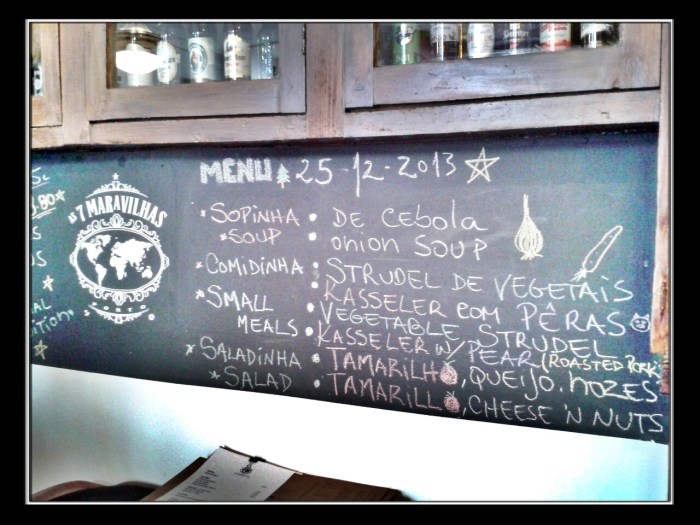 MENU 25-12-2013
AS 7 MARAVILHAS
PORTO
* SOPINHA • DE CEBOLA
* SOUP • ONION SOUP
* COMIDINHA • STRUDEL DE VEGETAIS
• KASSELER COM PÊRAS
* SMALL MEALS • VEGETABLE STRUDEL
• KASSELER W/ PEAR (ROASTED PORK)
* SALADINHA • TAMARILHO, QUEIJO, NOZES
* SALAD • TAMARILLO, CHEESE 'N NUTS